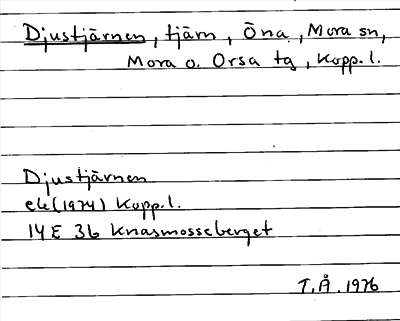 Djustjärnen, tjärn, Öna, Mora sn,
Mora o. Orsa tg, Kopp.l.
Djustjärnen
ek (1974) Kopp.l.
14E 3b Knasmosseberget
T.Å. 1976